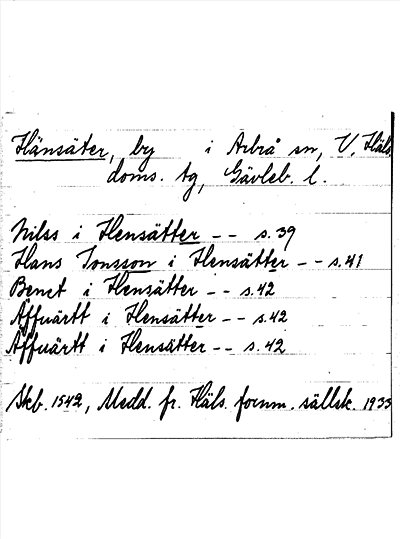 Hänsäter, by i Arbrå sn, V. Häls.
doms. tg, Gävleb. l.
Nilss i Hensätter -- s. 39
Hans Jonsson i Hensätter -- s. 41
Benet i Hensätter -- s. 42
Äffuärtt i Hensätter -- s. 42
Äffuärtt i Hensätter -- s. 42
Skb. 1542, Medd. fr. Häls. fornm. sällsk. 1935